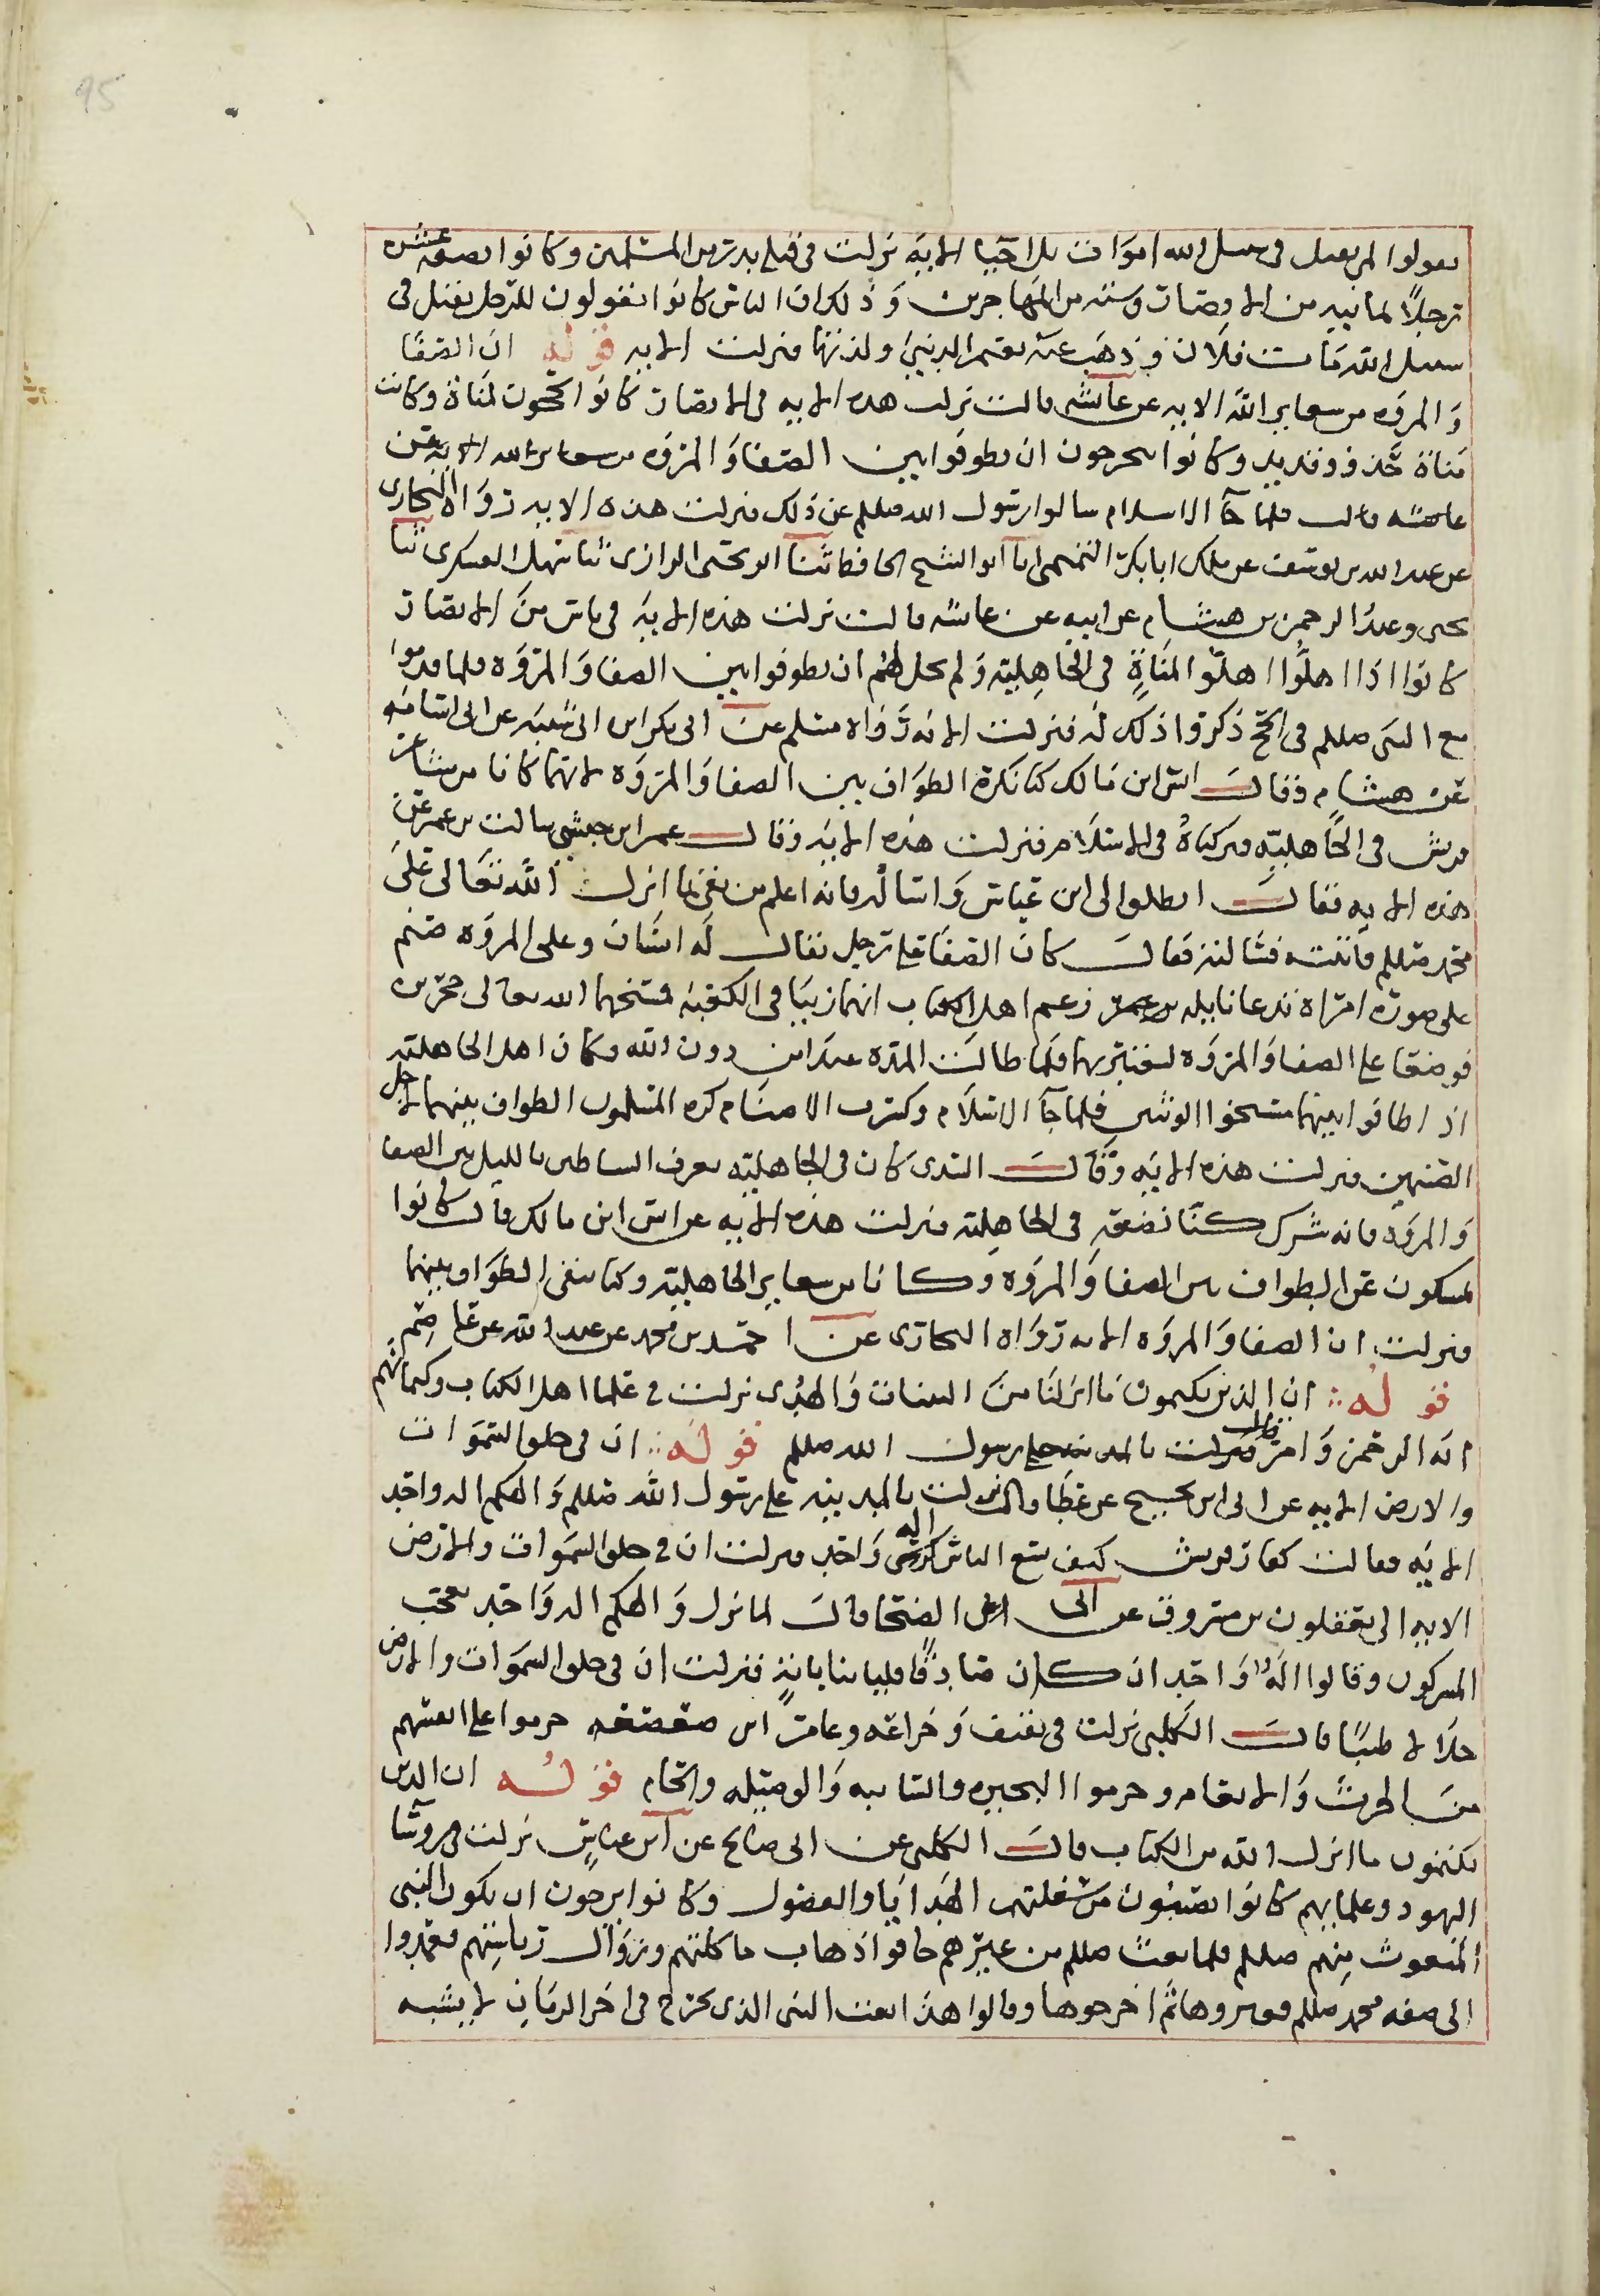 95
تقولوا لمن يقتل في سبيل الله اموات بل احيا الايه نزلت في قتلى بدر من المسلمين وكانوا بضعه عشر
رجلاً ثمانيه من الانصار وسته من المهاجرين وذلك ان الناس كانوا يقولون للرجل يقتل في
سبيل الله مات فلان وذهب عنه نعيم الدنيا ولذتها فنزلت الايه قوله ان الصفا
والمروه من سعاير الله الايه عن عائشه قالت نزلت هذه الايه في الانصار كانوا يحجون لمناة وكانت
مناة حذو قديد وكانوا يتحرجون ان يطوفوا بين الصفا والمروه من سعاير الله الايه عن
عائشه قالت فلما جآ الاسلام سالوا رسول الله صللم عن ذلك فنزلت هذه الايه رواه البخارى
عن عبد الله بن يوسف عن ملك ابا بكر التميمى ابا ابو الشيخ الحافظ ثنا ابو يحيى الرازى ثنا سهل العسكرى ثنا
يحيى وعبد الرحمن بن هشام عن ابيه عن عائشه قالت نزلت هذه الايه في ناس من الانصار
كانوا اذا اهلّوا اهلّوا لمناةٍ في الجاهلية ولم يحل لهم ان يطوفوا بين الصفا والمروه فلما قدموا
مع النبى صللم في الحج ذكروا ذلك له فنزلت الايه رواه مسلم عن ابى بكر ابن ابى شيبه عن ابى اسامه
عن هشام وقال انس ابن مالك كنا نكره الطواف بين الصفا والمروه لانهما كانا من مشاعر
قريش في الجاهليه فتركناه في الاسلام فنزلت هذه الايه وقال عمر ابن حبشى سالت بن عمر عن
هذه الايه فقال انطلق الى ابن عباس واساله فانه اعلم من بقى بما انزل الله تعالى على
محمد صللم فاتيته فسالته فقال كان الصفا على رجل يقال له اساف وعلى المروه صنم
على صورة امراة تدعا نايله من عمر زعم اهل الكتاب انهما زنيا في الكعبه فمسخهما الله تعالى حجرين
فوضعا على الصفا والمروه ليعتبر بهما فلما طالت المدة عبدا من دون الله وكان اهل الجاهليه
اذ اطافوا بينهما مسحوا الوثنين فلما جآ الاسلام وكسرت الاصنام كره المسلمون الطواف بينهما لاجل
الصنمين فنزلت هذه الايه وقال السدى كان في الجاهليه تعزف الشياطين بالليل بين الصفا
والمروه فانه شرك كنّا نصنعه في الجاهليه فنزلت هذه الايه عن انس ابن مالك قال كانوا
يمسكون عن الطواف بين الصفا والمروه وكانا من سعاير الجاهلية وكنا نتقى الطواف بينهما
فنزلت ان الصفا والمروه الايه رواه البخارى عن احمد بن محمد عن عبد الله عن عاصم
قوله ان الذين يكتمون ما انزلنا من البينات والهدى نزلت في علما اهل الكتاب وكتمانهم
اية الرجم وامر قوله فنزلت بالمدينه على رسول الله صللم قوله ان في خلق السموات
والارض الايه عن ابى ابن نجيح عن عطا قال نزلت بالمدينه على رسول الله صللم والهكم اله واحد
الايه فقالت كفار قريش كيف يسع الناس اله واحد فنزلت ان في خلق السموات والارض
الايه الى يعقلون بن مسروق عن ابى الضحا قال لما نزل والهكم اله واحد تعجب
المسركون وقالوا اله واحد ان كان صادقًا فلياتنا بايةٍ فنزلت ان في خلق السموات والارض
حلالا طيبًا قال الكلبى نزلت في ثقيف وخزاعه وعامر ابن صعصعه حرموا على انفسهم
من الحرث والانعام وحرموا البحيره والسايبه والوصيله والحام قوله ان الذين
يكتمون ما انزل الله من الكتاب قال الكلبى عن ابى صالح عن ابن عباس نزلت في روسا
اليهود وعلمايهم كانوا يصيبون من سفلتهم الهدايا والفضول وكانوا يرجون ان يكون النبى
المبعوث منهم صللم فلما بعث صللم من غيرهم خافوا ذهاب ماكلتهم وزوال رياستهم فعمدوا
الى صفه محمد صللم فغيروها ثم اخرجوها وقالوا هذا نعت النبى الذى يخرج في اخر الزمان لا يشبه